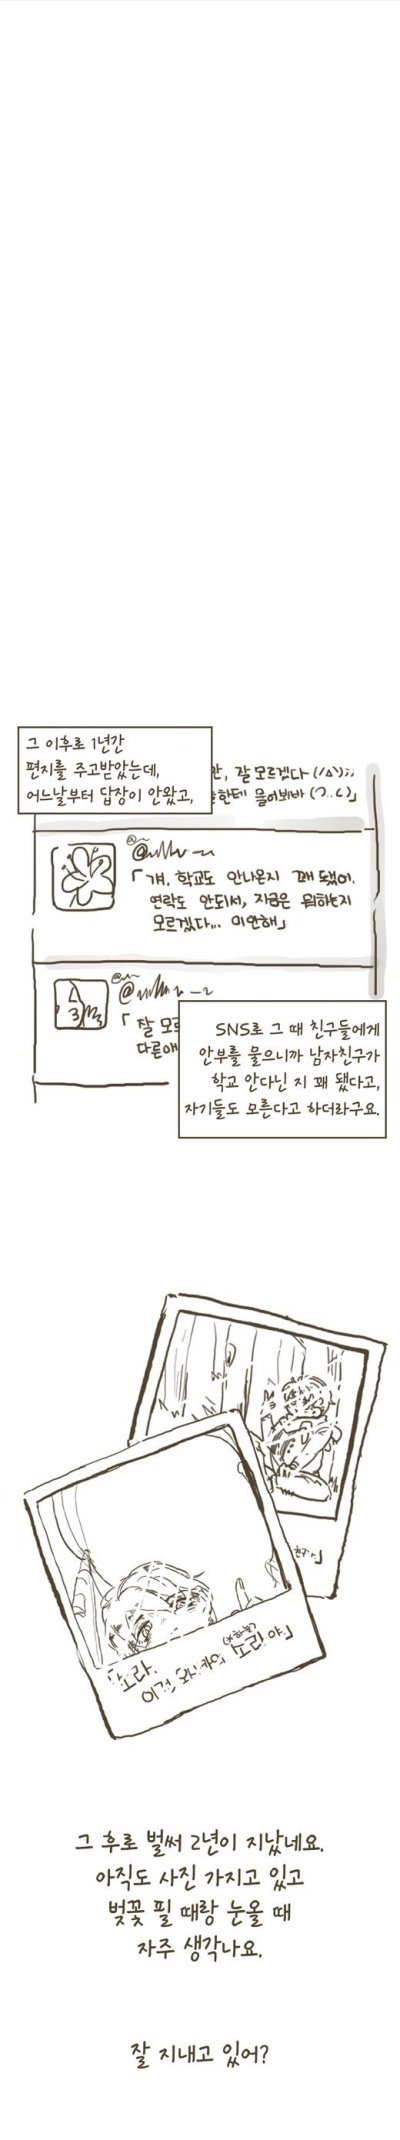 그 이후로 1년간
편지를 주고받았는데,
어느날부터 답장이 안왔고,
잘 모르겠다
한테 물어봐바
「걔, 학교도 안나온지 꽤 됐어.
연락도 안되서, 지금은 뭐하는지
모르겠다... 미안해」
「잘 모르
다른애
SNS로 그 때 친구들에게
안부를 물으니까 남자친구가
학교 안다닌 지 꽤 됐다고,
자기들도 모른다고 하더라구요.
그 후로 벌써 2년이 지났네요.
아직도 사진 가지고 있고
벚꽃 필 때랑 눈올 때
자주 생각나요.
잘 지내고 있어?